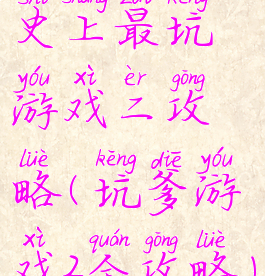 shǐ shàng zuì kēng
史上最坑
yóu xì èr gōng
游戏二攻
lüè kēng diē yóu
略(坑爹游
xì quán gōng lüè
戏2全攻略)